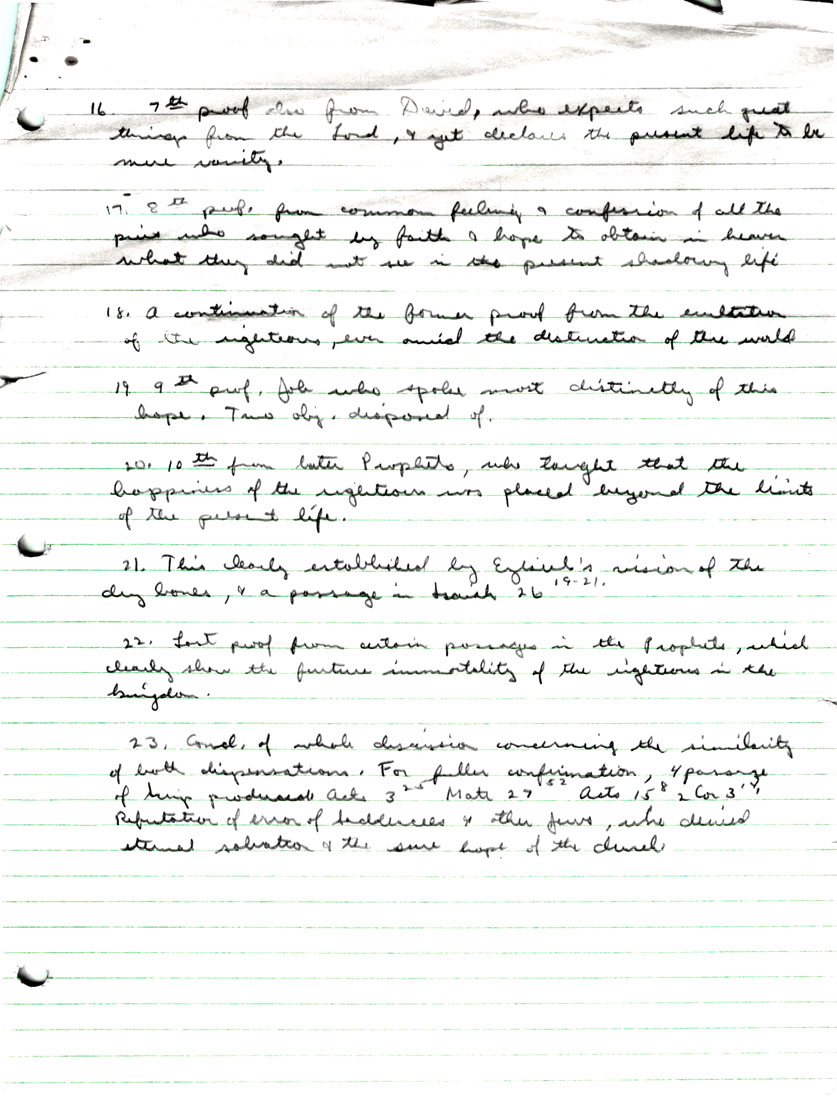 16. 7th proof also from David, who expects such great
things from the Lord, & yet declares the present life to be
mere vanity.
17. 8th proof. from common feeling & confession of all the
pious who sought by faith & hope to obtain in heaven
what they did not see in the present shadowy life
18. A continuation of the former proof from the exultation
of the righteous, even amid the destruction of the world
19. 9th proof. Job who spoke most distinctly of this
hope. Two obj. disposed of.
20. 10th from later Prophets, who taught that the
happiness of the righteous was placed beyond the limits
of the present life.
21. This clearly established by Ezekiel's vision of the
dry bones, & a passage in Isaiah 26 19-21.
22. Last proof from certain passages in the Prophets, which
clearly show the future immortality of the righteous in the
kingdom.
23. Concl. of whole discussion concerning the similarity
of both dispensations. For fuller confirmation, 4 passages
of Scrip produced Acts 3 25 Matt 27 52 Acts 15 8 2 Cor 3 14.
Refutation of error of Sadducees & other Jews, who denied
eternal salvation & the sure hope of the church